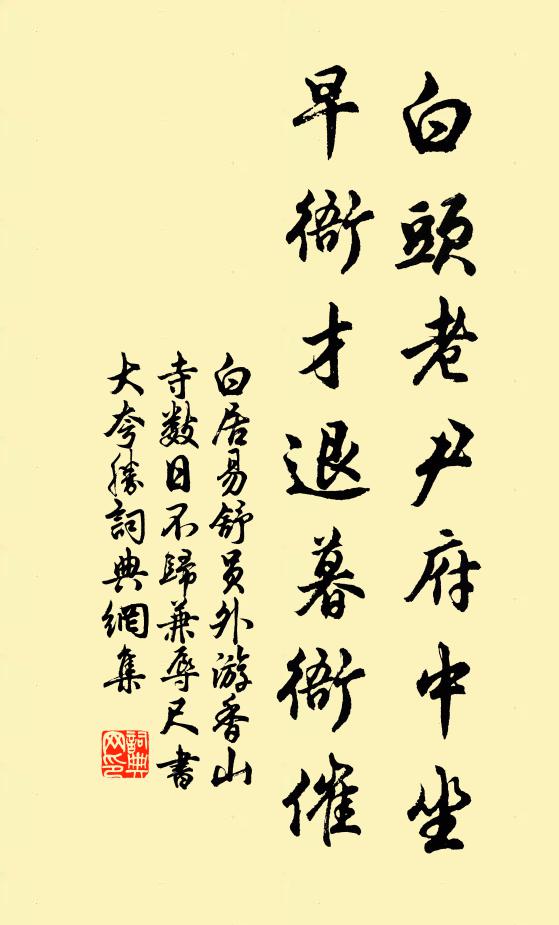 白頭老尹府中坐
早衙才退暮衙催
白居易舒員外游香山
寺數日不歸兼辱尺書
大夸勝詞典網集
詞典
网印